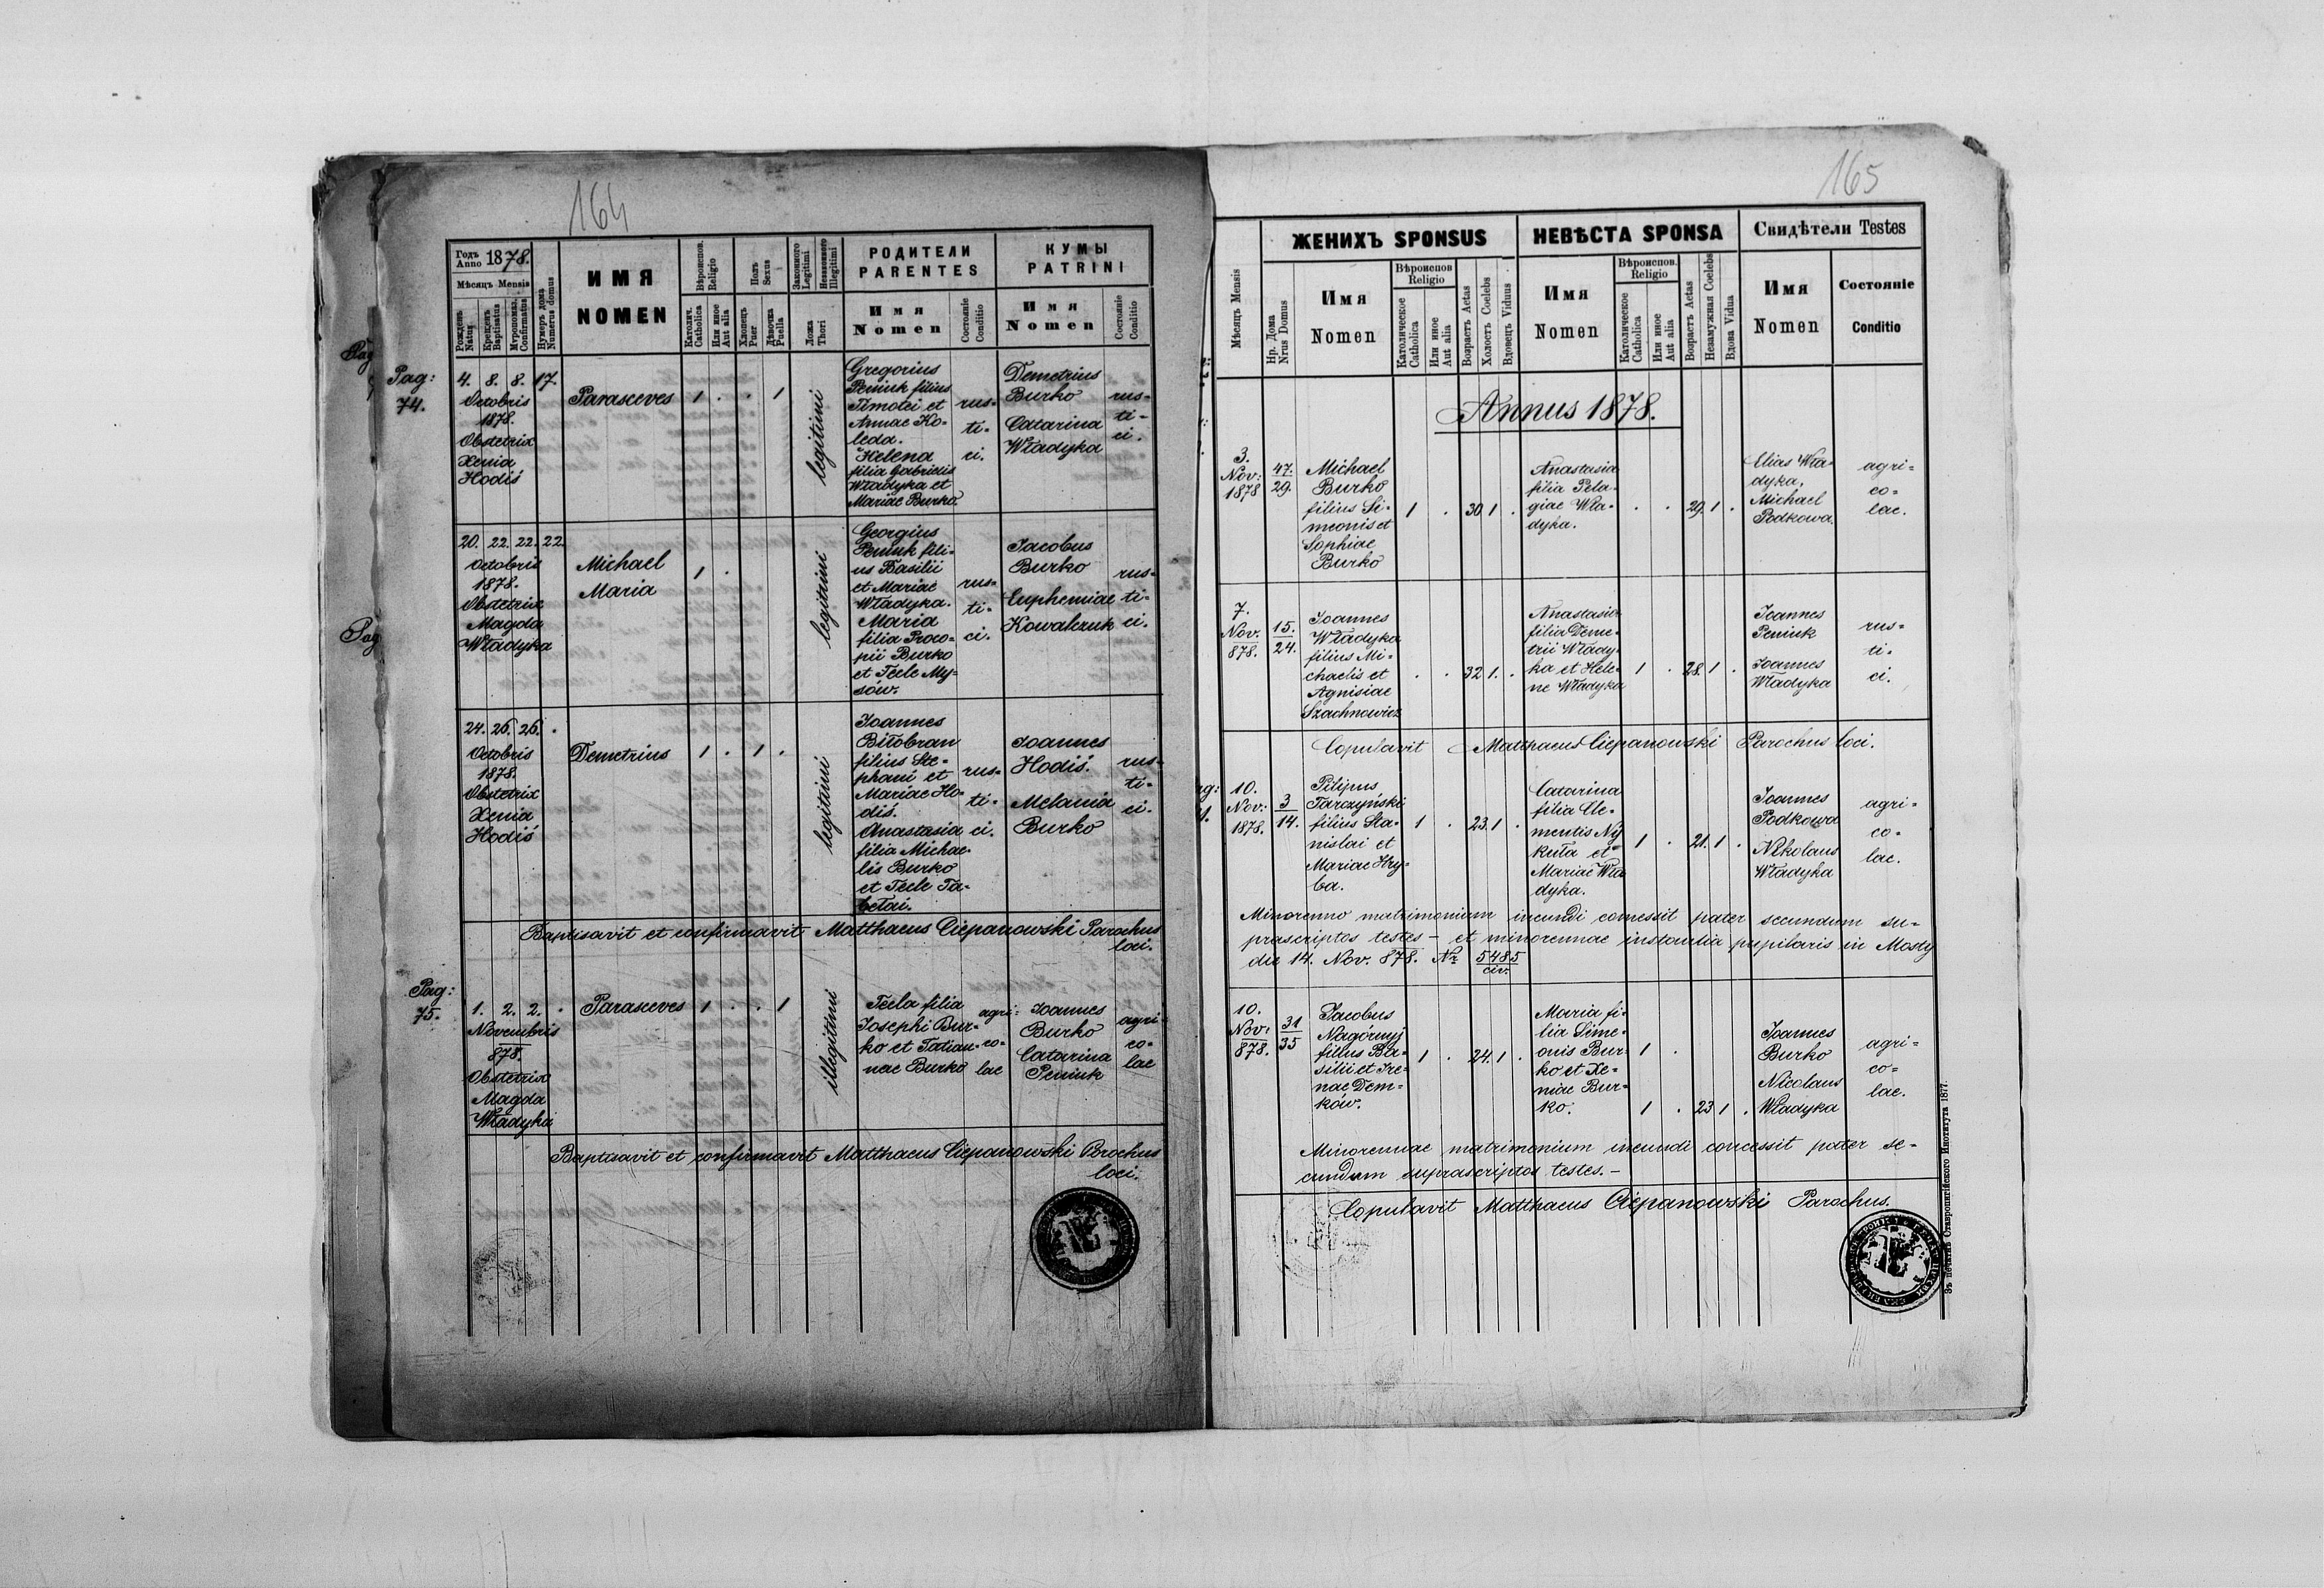 164
Годъ Anno 1878.
Мѣсяцъ Mensis
Рожденъ Natus
Крещенъ Baptisatus
Мѵропомаз. Confirmatus
Нумеръ дома Numerus domus
ИМЯ
NOMEN
Вѣроиспов. Religio
Католич. Catholica
Или иное Aut alia
Полъ Sexus
Хлопецъ Puer
Дѣвочка Puella
Законного Legitimi
Незаконного Illegitimi
Ложа Thori
РОДИТЕЛИ
PARENTES
Имя
Nomen
Состояніе Conditio
КУМЫ
PATRINI
Имя
Nomen
Состояніе Conditio
Pag
Pag:
74.
4. 8. 8. 17.
Octobris
1878.
Obstetrix
Xenia
Hodiś
Parasceves
1 . . 1
legitimi
Gregorius
Peniuk filius
Timotei et
Annae Ko-
leda.
Helena
filia Gabrielis
Władyka et
Mariae Burko
rus-
ti-
ci.
Demetrius
Burko
Catarina
Władyka
rus-
ti-
ci.
20. 22. 22. 22.
Octobris
1878.
Obstetrix
Magda
Władyka
Michael
Maria
1 .
legitimi
Georgius
Peniuk fili-
us Basilii
et Mariae
Władyka.
Maria
filia Proco-
pii Burko
et Tecle My-
sów.
rus-
ti-
ci.
Jacobus
Burko
Euphemiae
Kowalczuk
rus-
ti-
ci.
Pag
24. 26. 26. .
Octobris
1878.
Obstetrix
Xenia
Hodiś
Demetrius
1 . 1 .
legitimi
Joannes
Biłobran
filius Ste-
phani et
Mariae Ho-
diś.
Anastasia
filia Michae-
lis Burko
et Tecle Ta-
betai.
rus-
ti-
ci.
Joannes
Hodiś.
Melania
Burko
rus-
ti-
ci.
Baptisavit et confirmavit Matthaeus Ciepanowski Parochus
loci.
Pag:
75.
1. 2. 2. .
Novembris
878.
Obstetrix
Magda
Władyka
Parasceves
1 . . 1
illegitimi
Tecla filia
Josephi Bur-
ko et Tatian-
nae Burko
agri-
co-
lae
Joannes
Burko
Catarina
Peniuk
agri-
co-
lae
Baptisavit et confirmavit Matthaeus Ciepanowski Parochus
loci.
165
Мѣсяцъ Mensis
Нр. Дома Nrus Domus
ЖЕНИХЪ SPONSUS
Имя
Nomen
Вѣроиспов Religio
Католическое Catholica
Или иное Aut alia
Возрастъ Aetas
Холостъ Coelebs
Вдовецъ Viduus
НЕВѢСТА SPONSA
Имя
Nomen
Вѣроиспов. Religio
Католическое Catholica
Или иное Aut alia
Возрастъ Aetas
Незамужная Coelebs
Вдова Vidua
Свидѣтели Testes
Имя
Nomen
Состояніе
Conditio
Annus 1878.
3.
Nov:
1878
47.
29.
Michael
Burko
filius Si-
meonis et
Sophiae
Burko
1 . 30 1 .
Anastasia
filia Pela-
giae Wła-
dyka.
. . 29. 1 .
Elias Wła-
dyka.
Michael
Podkowa.
agri-
co-
lae.
7.
Nov.
878.
15.
24.
Joannes
Władyka
filius Mi-
chaelis et
Agnisiae
Szachnowicz
. . 32 1. .
Anastasia
filia Deme-
trii Włady-
ka et Hele-
ne Władyka
1 . 28. 1 .
Joannes
Peniuk
Joannes
Władyka
rus-
ti-
ci.
Copulavit Matthaeus Ciepanowski Parochus loci.
10.
Nov:
1878.
3
14.
Pilipus
Tarczyński
filius Sta-
nislai et
Mariae Hry-
ba.
1 . 23. 1 .
Catarina
filia Cle-
mentis Ny
kuła et
Mariae Wła
dyka.
1 . 21. 1 .
Joannes
Podkowa
Nikolaus
Władyka
agri-
co-
lae.
Minorenno matrimonium ineundi comessit pater secundum su-
prascriptos testes - et minorennae instantia pupilaris in Mosty
die 14. Nov. 878. Nr 5485
civ.
10.
Nov:
878.
31
35
Jacobus
Nagórnyj
filius Ba-
silii et Ire-
nae Dem-
ków.
1 . 24. 1 .
Maria fi-
lia Sime-
onis Bur-
ko et Xe-
niae Bur-
ko.
1 .
1 . 23 1 .
Joannes
Burko
Nicolaus
Władyka
agri-
co-
lae.
Minorennae matrimonium ineundi concessit pater se-
cundum suprascriptos testes. -
Copulavit Matthaeus Ciepanowski Parochus.
Зъ печатнѣ Ставропигійского Института 1877.